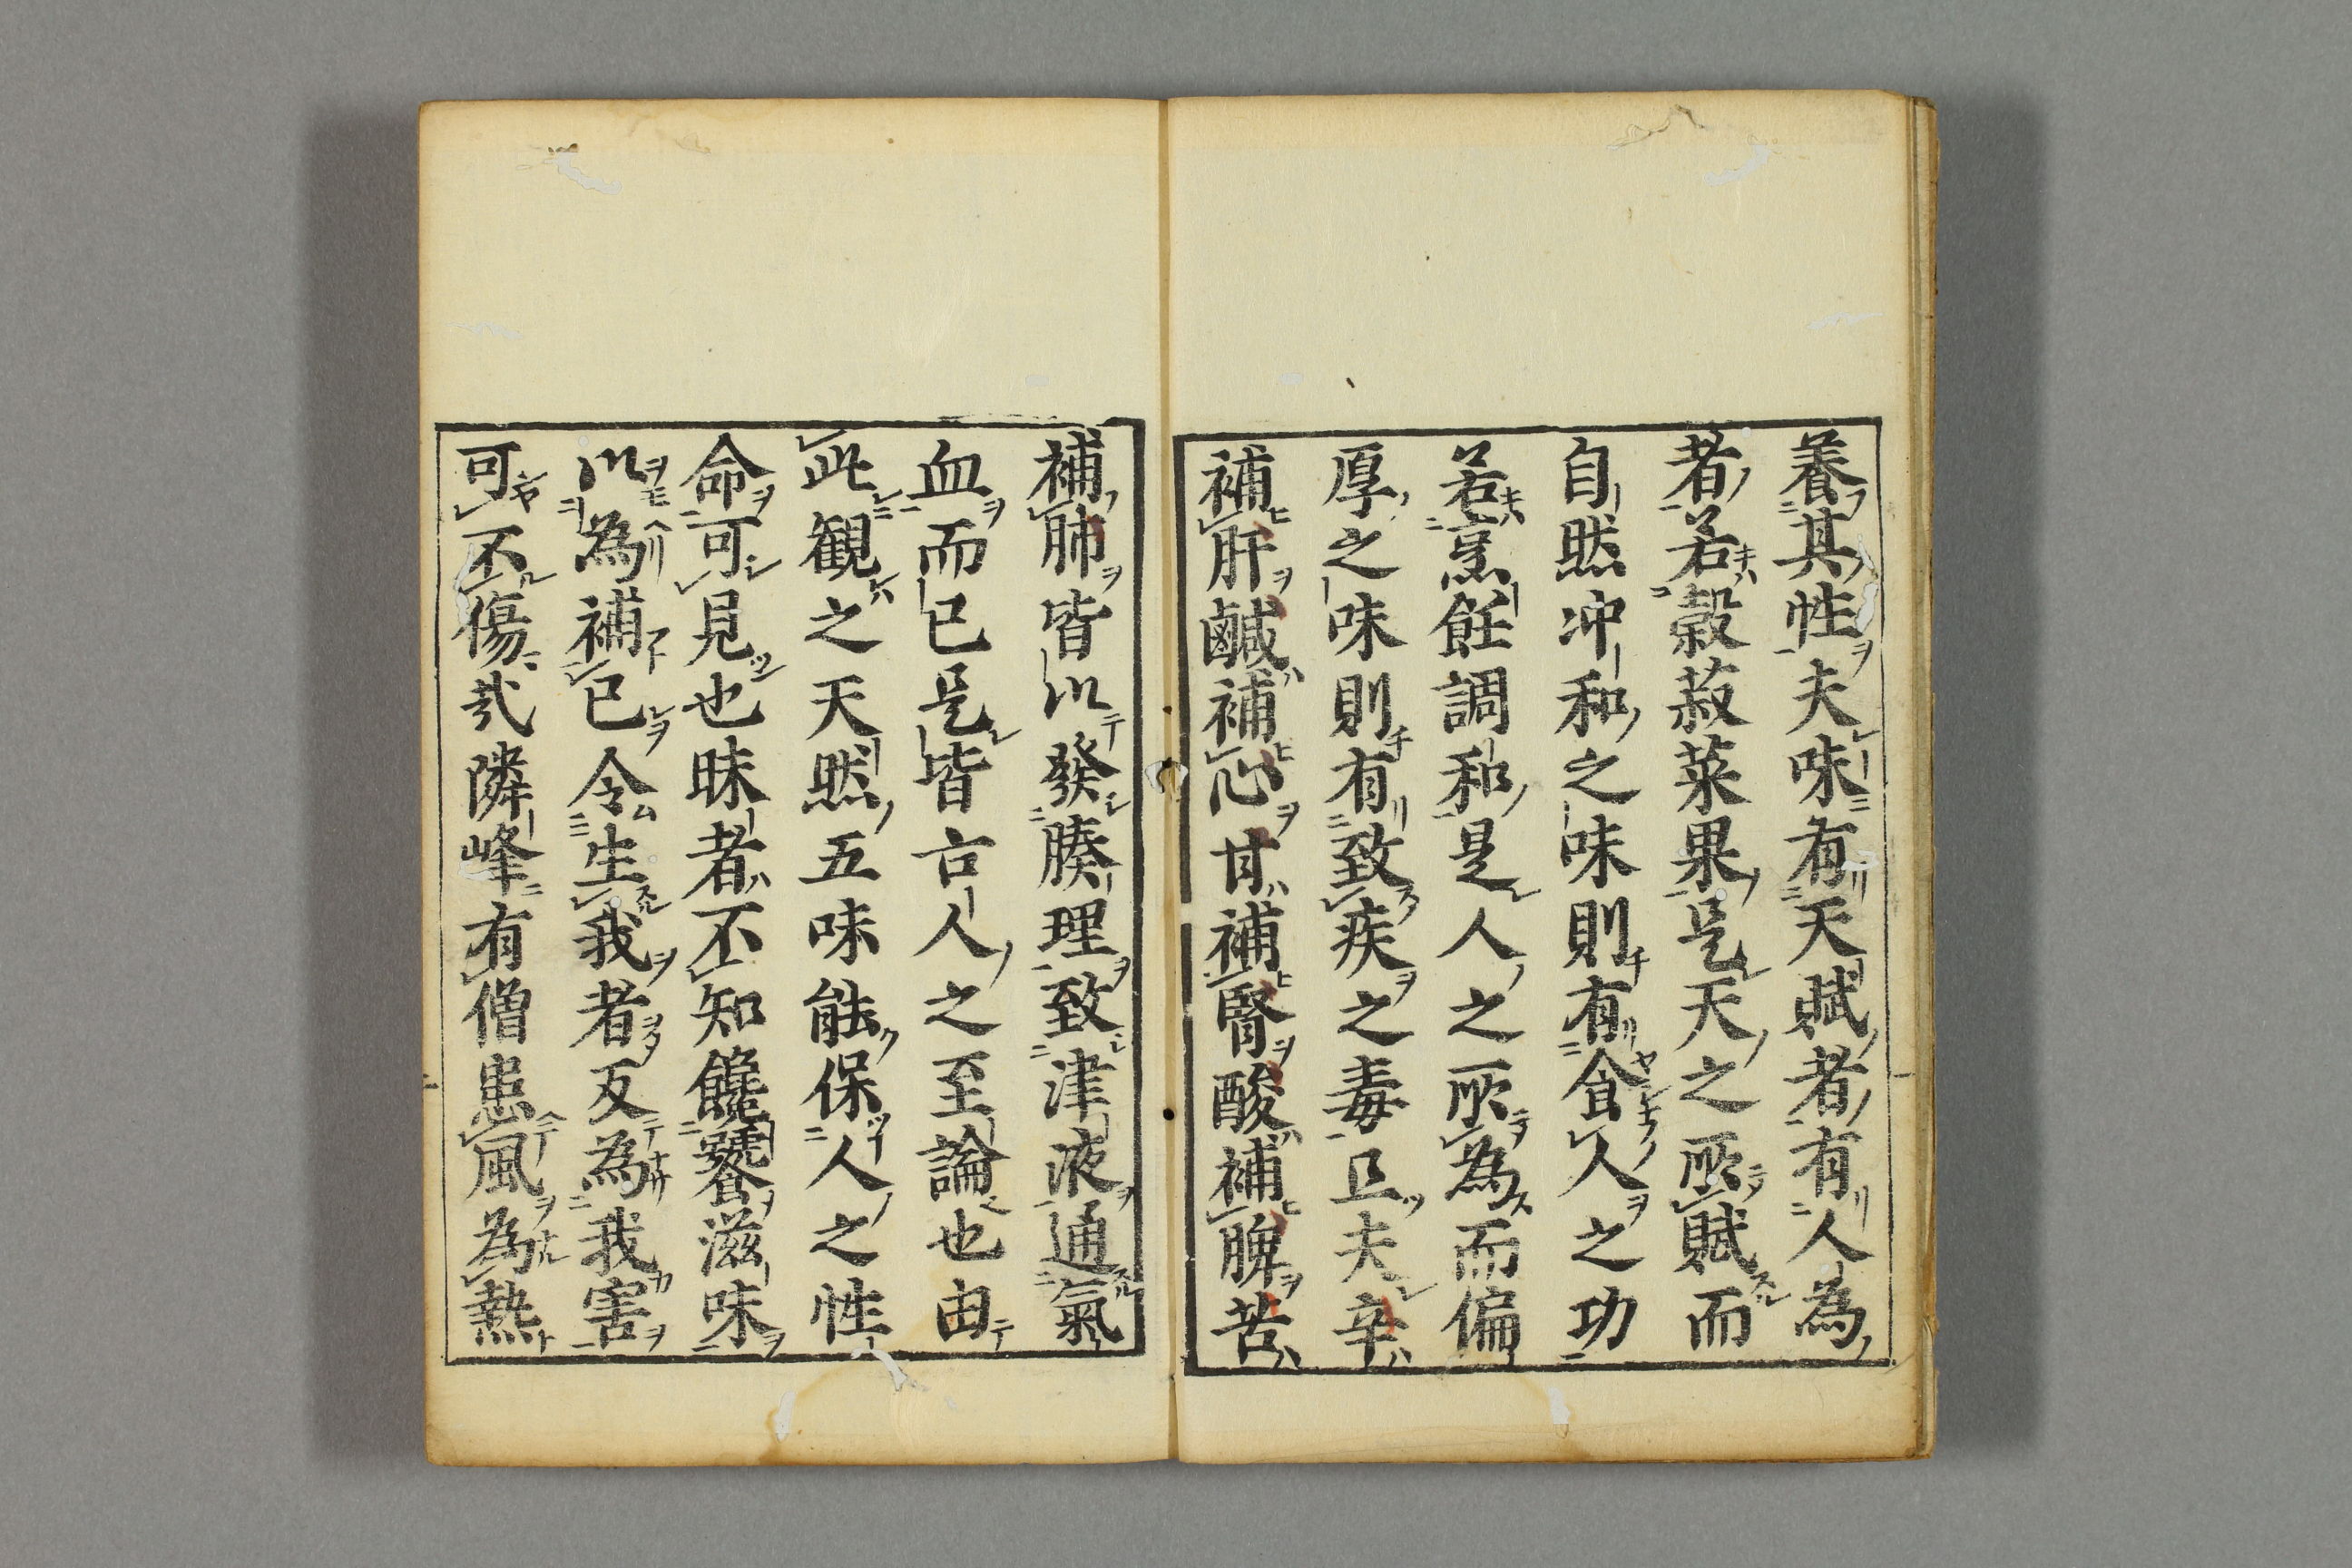 養其性夫味有天賦者有人為
者若穀菽菜果是天之所賦而
自然冲和之味則有食人之功
若烹飪調和是人之所為而偏
厚之味則有致疾之毒且夫辛
補肝鹹補心甘補腎酸補脾苦
補肺皆以發腠理致津液通氣
血而已是皆古人之至論也由
此観之天然五味能保人之性
命可見也昧者不知饞饕滋味
以為補已令生我者反為我害
可不傷哉隣峰有僧患風為熱